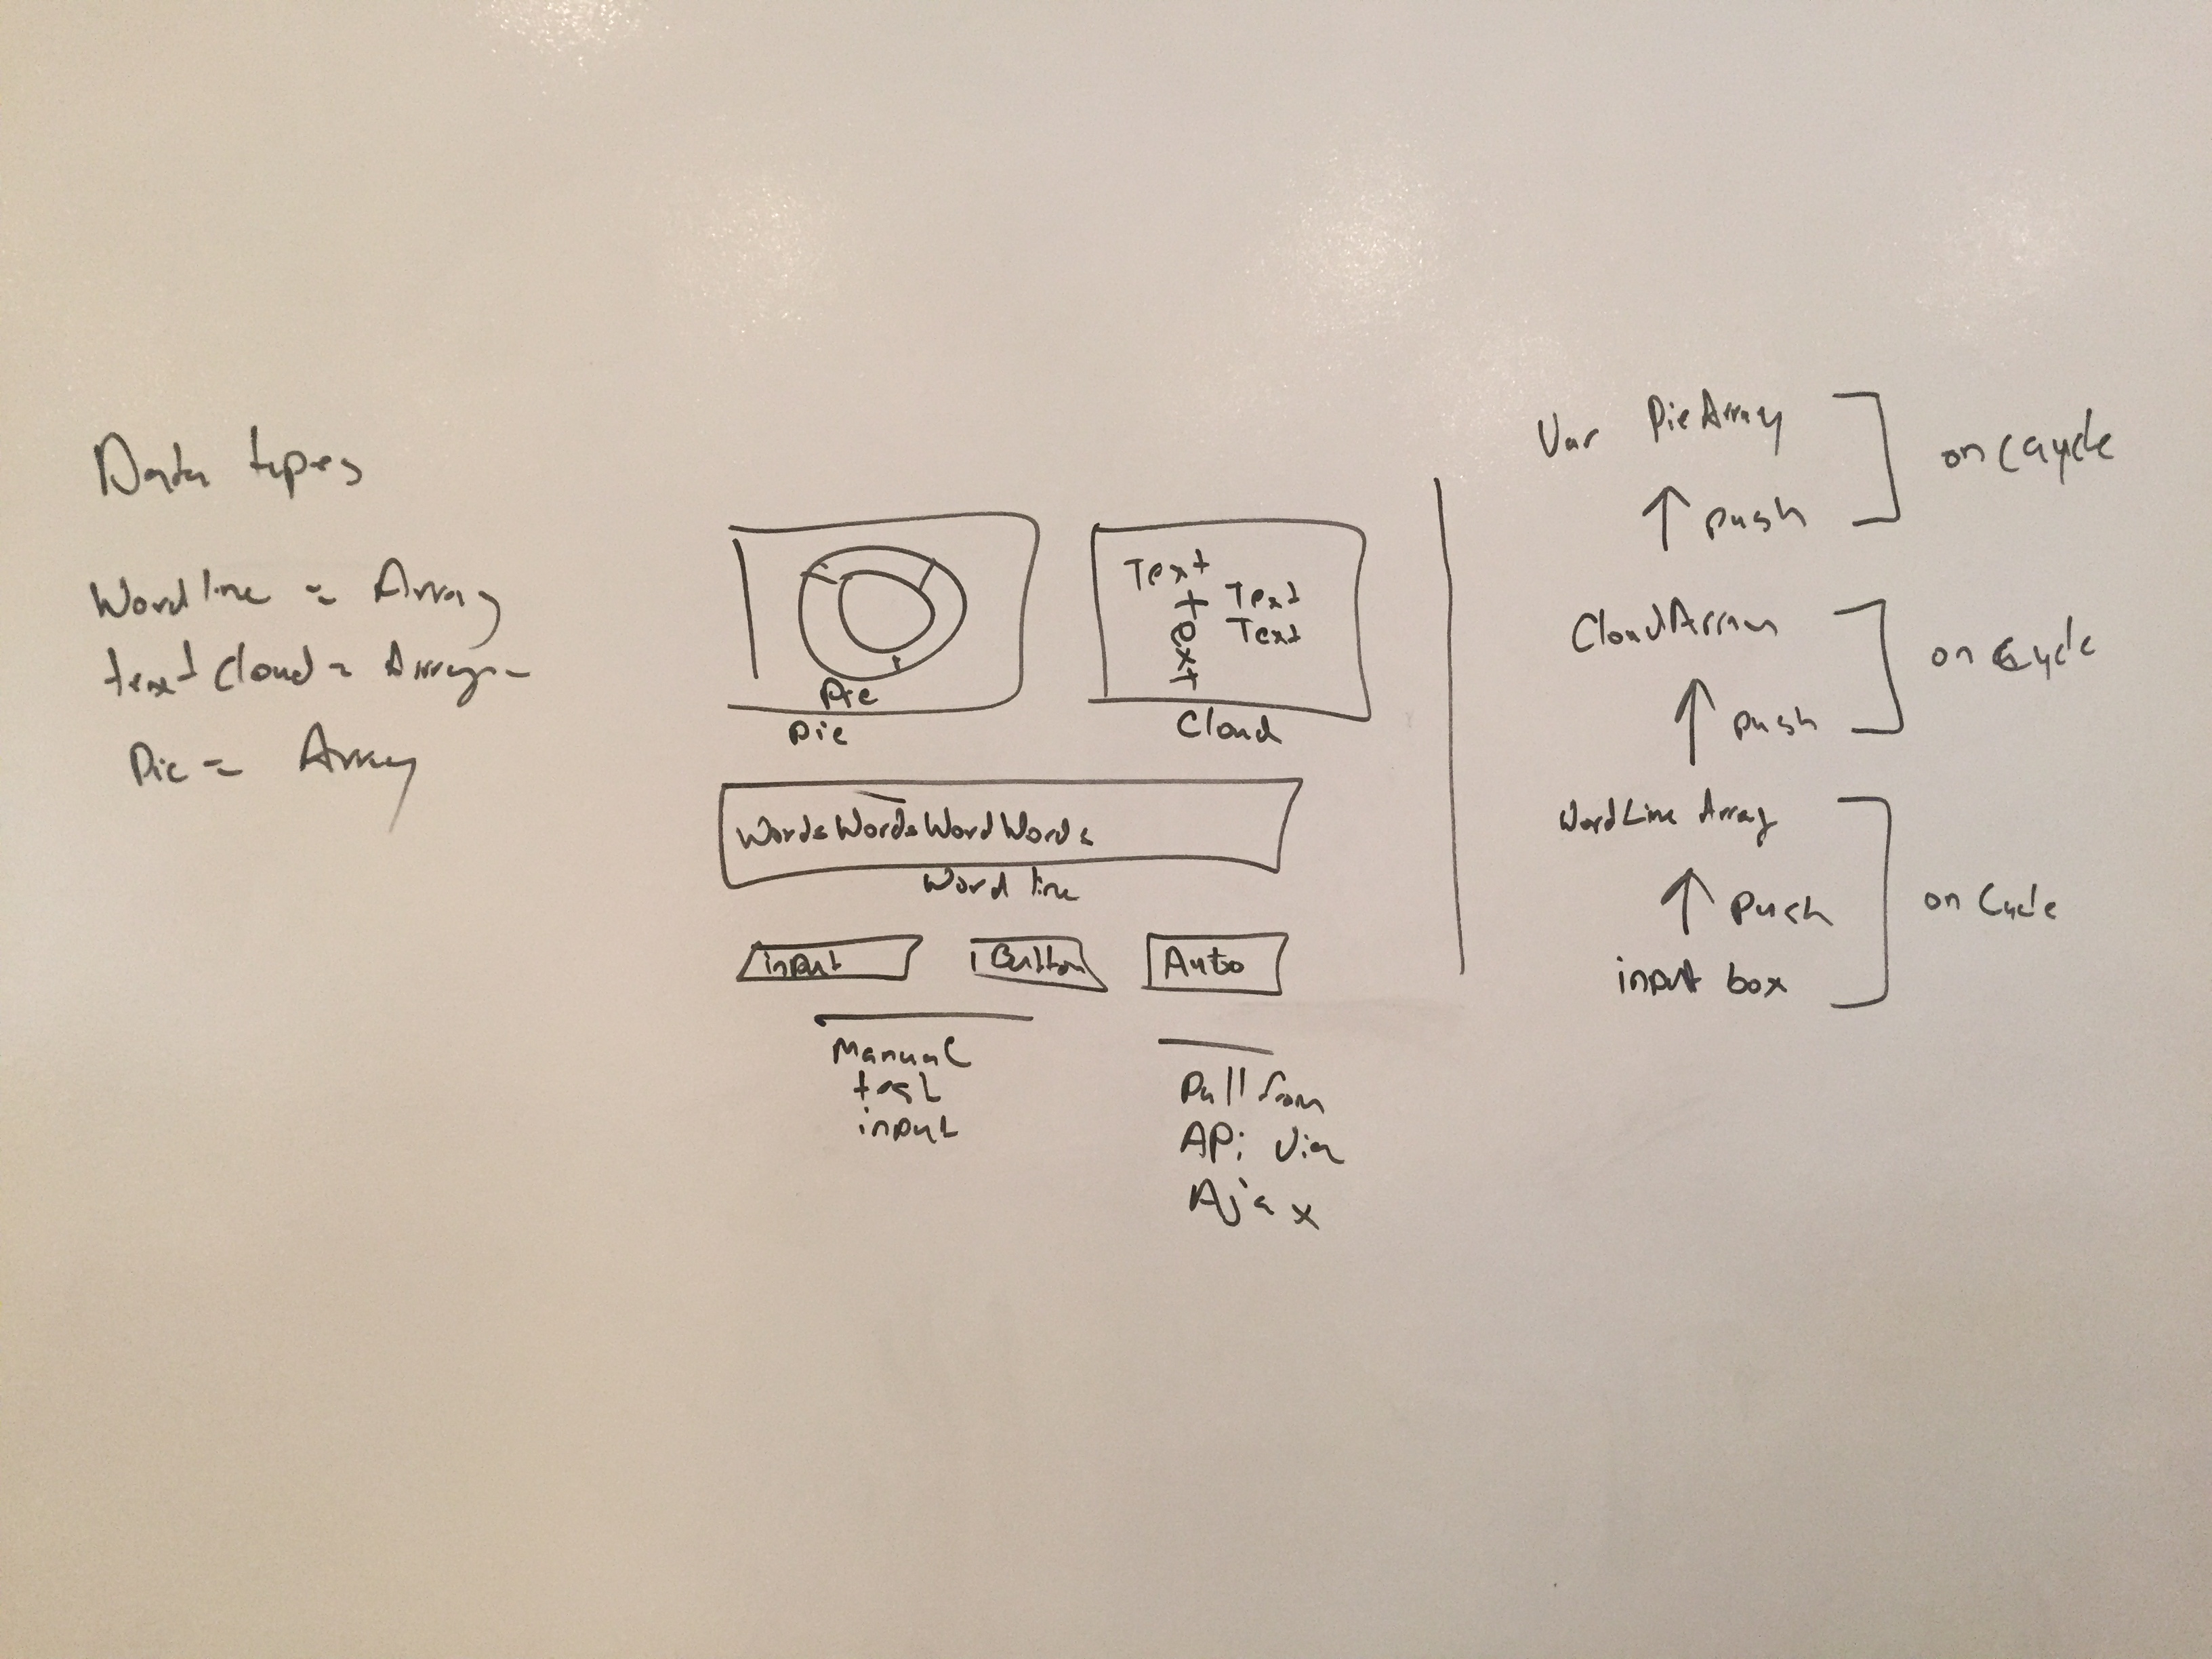 Data types
Wordline = Array
text Cloud = Array
Pie = Array
Pie
Pie
Text
Text
Text
text
Cloud
Words Words Word Words
Word line
input
Button
Auto
Manual
test
input
Pull from
APi Via
Ajax
Var PieArray
↑ push
on Cycle
CloudArray
↑ push
on Cycle
WordLine Array
↑ Push
input box
on Cycle